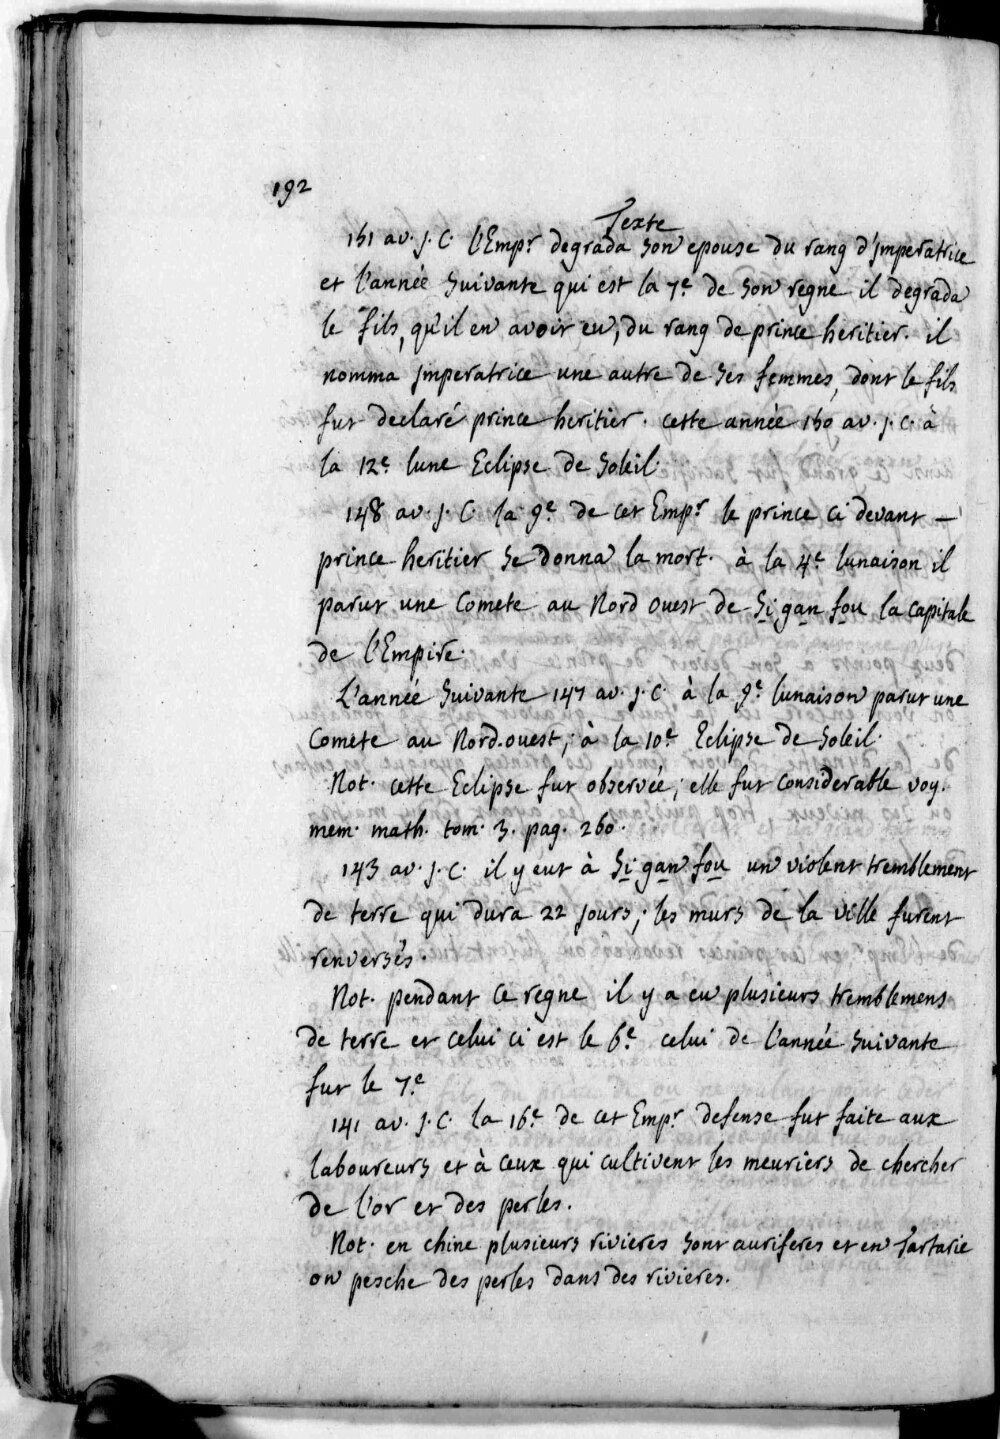 192
Texte
151 av. J. C. l'Emp.r degrada son epouse du rang d'Imperatrice
et l'année suivante qui est la 7.e de son regne il degrada
le fils, qu'il en avoit eu, du rang de prince heritier. il
nomma Imperatrice une autre de ses femmes, dont le fils
fut declaré prince heritier. cette année 150 av. J. C. à
la 12.e lune Eclipse de Soleil.
148 av. J. C. la 9.e de cet Emp.r le prince ci devant —
prince heritier se donna la mort. à la 4.e lunaison il
parut une Comete au Nord ouest de Si gan fou la capitale
de l'Empire.
L'année suivante 147 av. J. C. à la 9.e lunaison parut une
Comete au Nord-ouest; à la 10.e Eclipse de Soleil.
Not. cette Eclipse fut observée; elle fut considerable voy.
mem. math. tom. 3. pag. 260.
143 av. J. C. il y eut à Si gan fou un violent tremblement
de terre qui dura 22 jours; les murs de la ville furent
renversés.
Not. pendant ce regne il y a eu plusieurs tremblemens
de terre et celui ci est le 6.e celui de l'année suivante
fut le 7.e
141 av. J. C. la 16.e de cet Emp.r defense fut faite aux
laboureurs et à ceux qui cultivent les meuriers de chercher
de l'or et des perles.
Not. en chine plusieurs rivieres sont auriferes et en Tartarie
on pesche des perles dans des rivieres.